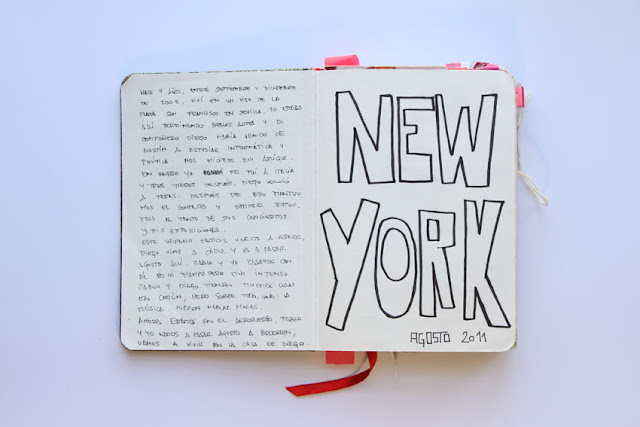 HACE 9 AÑOS, ENTRE SEPTIEMBRE Y DICIEMBRE
DE 2002, VIVÍ EN UN PISO DE LA
PLAZA SAN FRANCISCO EN SEVILLA. YO ESTABA
ALLÍ TERMINANDO BELLAS ARTES Y MI
COMPAÑERO DIEGO HABÍA VENIDO DE
AUSTIN A ESTUDIAR INFORMÁTICA Y
POLÍTICA. NOS HICIMOS MUY AMIGOS.
EN ENERO YO ME FUI A ITALIA
Y TRES MESES DESPUÉS, DIEGO VOLVIÓ
A TEXAS. DESPUÉS DE ESO MANTUVI-
MOS EL CONTACTO Y SIEMPRE ESTUVI-
MOS AL TANTO DE SUS CONCIERTOS
Y MIS EXPOSICIONES.
ESTE VERANO HEMOS VUELTO A VERNOS,
DIEGO VINO A CÁDIZ Y VA A PASAR
AGOSTO ALLÍ. PABLO Y YO PASAMOS CON
ÉL POCO TIEMPO PERO MUY INTENSO.
PABLO Y DIEGO TIENEN MUCHAS COSAS
EN COMÚN, PERO SOBRE TODO, UNA: LA
MÚSICA. PUEDEN HABLAR HORAS.
AHORA ESTAMOS EN EL AEROPUERTO, PABLO
Y YO VAMOS A PASAR AGOSTO A BROOKLYN,
VAMOS A VIVIR EN LA CASA DE DIEGO
NEW
YORK
AGOSTO 2011